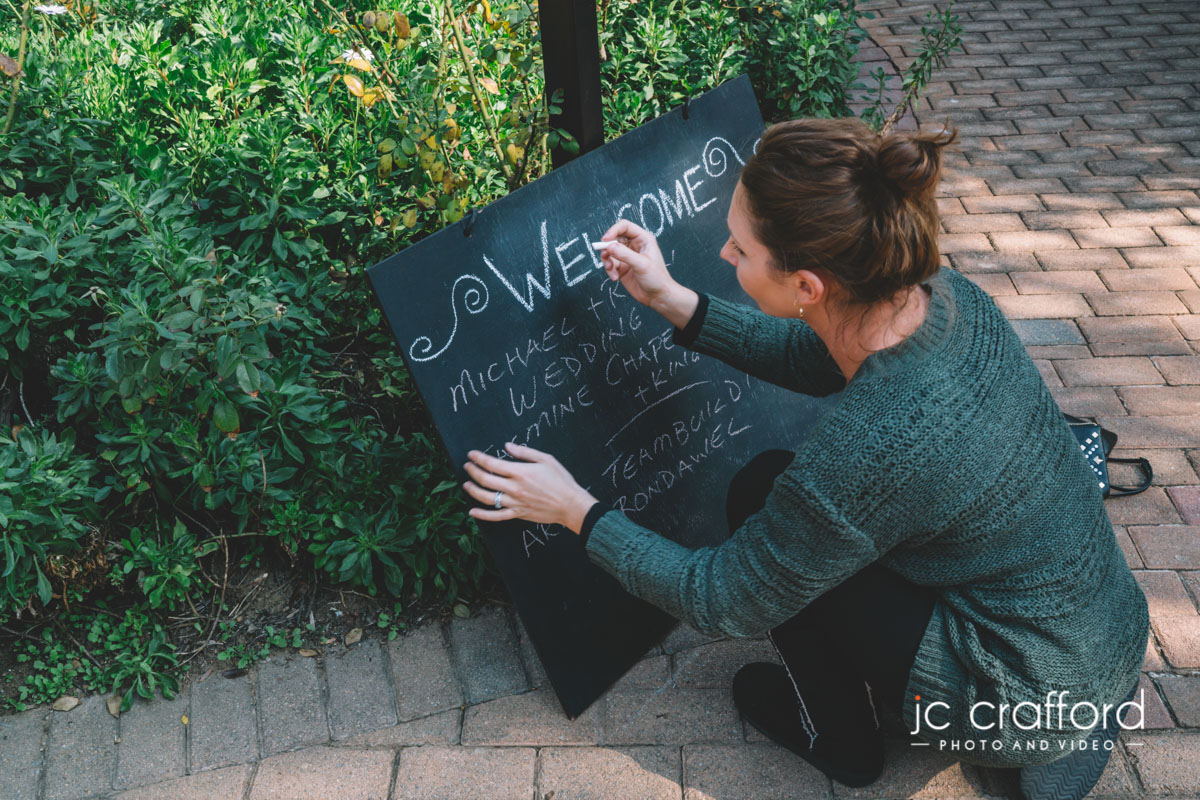 WELCOME
MICHAEL +
WEDDING
CHAPE
+ KIN
TEAMBUILDI
RONDAWEL
jc crafford
PHOTO AND VIDEO